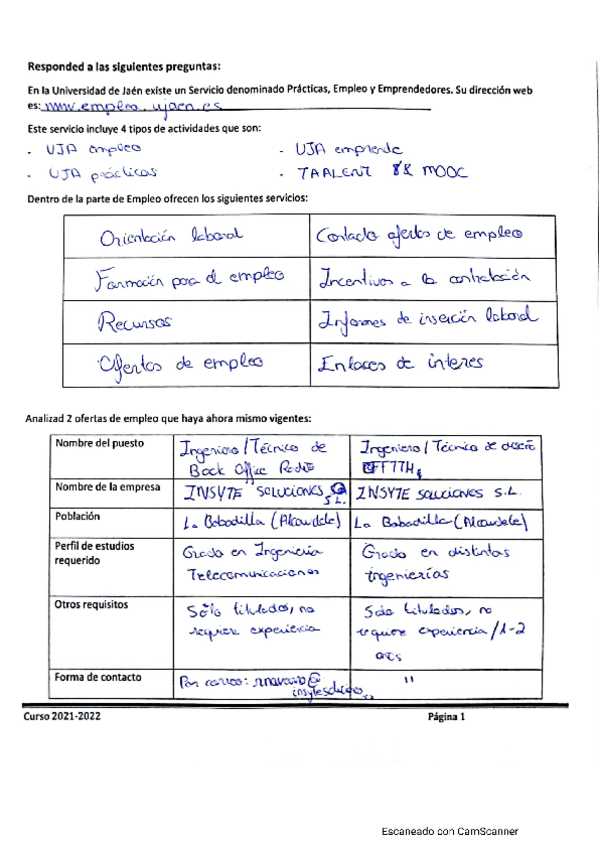 Responded a las siguientes preguntas:
En la Universidad de Jaén existe un Servicio denominado Prácticas, Empleo y Emprendedores. Su dirección web
es: www.empleo.ujaen.es
Este servicio incluye 4 tipos de actividades que son:
- UJA empleo - UJA emprende
- UJA prácticas - TAALENT MOOC
Dentro de la parte de Empleo ofrecen los siguientes servicios:
Orientación laboral Contacto ofertas de empleo
Formación para el empleo Incentivos a la contratación
Recursos Informes de inserción laboral
Ofertas de empleo Enlaces de interes
Analizad 2 ofertas de empleo que haya ahora mismo vigentes:
Nombre del puesto Ingeniero/Técnico de Ingeniero/Técnico de diseño
Back Office Radio FTTH
Nombre de la empresa INSYTE SOLUCIONES S.L. INSYTE SOLUCIONES S.L.
Población La Bobadilla (Alcaudete) La Bobadilla (Alcaudete)
Perfil de estudios Grado en Ingeniería Grado en distintas
requerido Telecomunicaciones ingenierías
Otros requisitos Sólo titulados, no Solo titulados, no
requiere experiencia requiere experiencia/1-2
años
Forma de contacto Por correo: "
Curso 2021-2022 Página 1
Escaneado con CamScanner